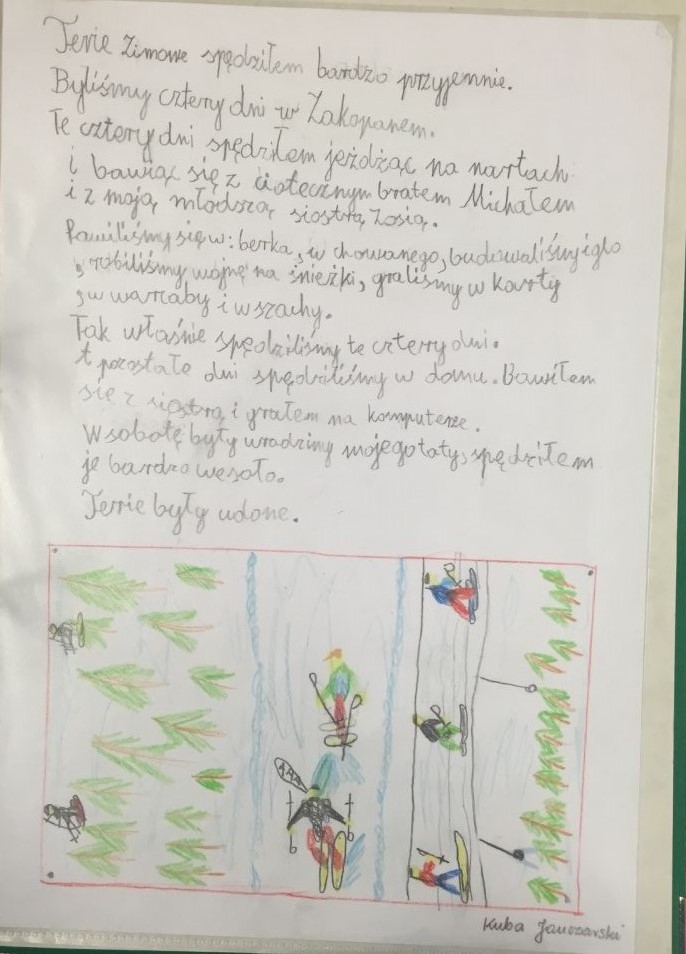 Ferie zimowe spędziłem bardzo przyjemnie.
Byliśmy cztery dni w Zakopanem.
Te cztery dni spędziłem jeżdżąc na nartach
i bawiąc się z ciotecznym bratem Michałem
i z moją młodszą siostrą Zosią.
Bawiliśmy się w: berka, w chowanego, budowaliśmy iglo
, robiliśmy wojnę na śnieżki, graliśmy w karty
, w warcaby i w szachy.
Tak właśnie spędziliśmy te cztery dni.
A pozostałe dni spędziliśmy w domu. Bawiłem
się z siostrą i grałem na komputerze.
W sobotę były urodziny mojego taty, spędziłem
je bardzo wesoło.
Ferie były udone.
Kuba Janczarski